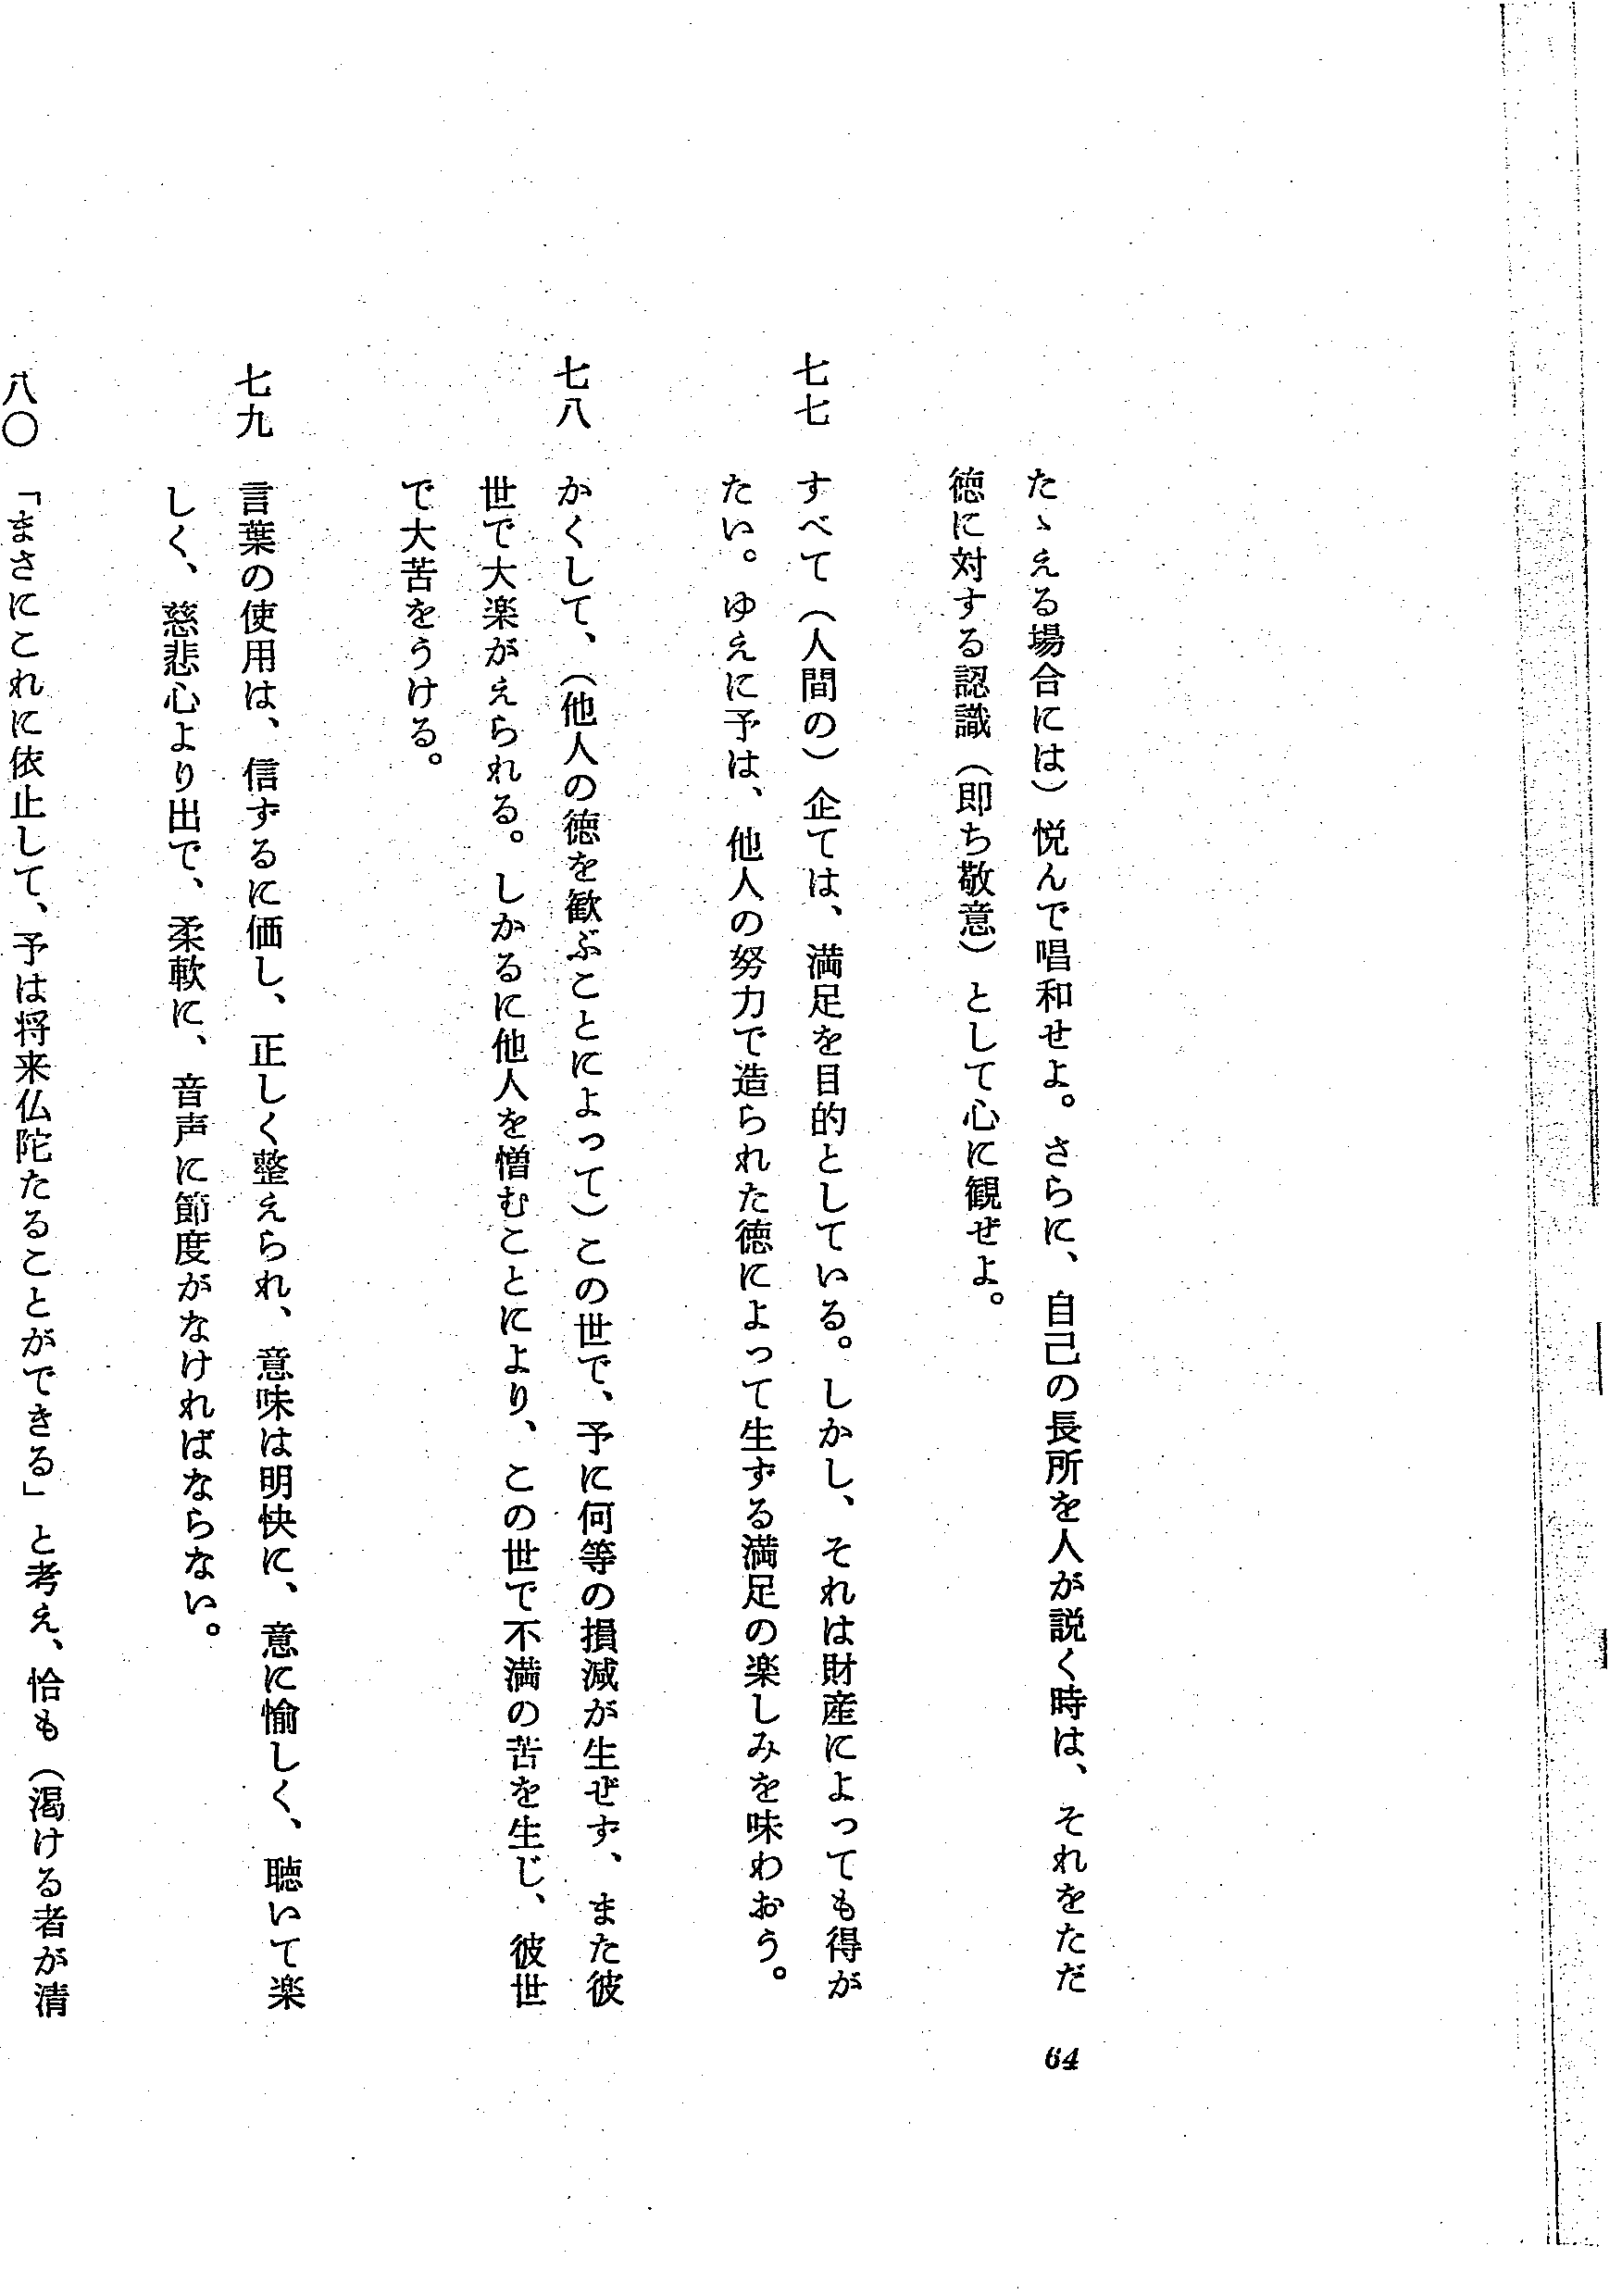 たゝえる場合には）悦んで唱和せよ。さらに、自己の長所を人が説く時は、それをただ
徳に対する認識（即ち敬意）として心に観ぜよ。
七七　すべて（人間の）企ては、満足を目的としている。しかし、それは財産によっても得が
たい。ゆえに予は、他人の努力で造られた徳によって生ずる満足の楽しみを味わおう。
七八　かくして、（他人の徳を歓ぶことによって）この世で、予に何等の損減が生ぜず、また彼
世で大楽がえられる。しかるに他人を憎むことにより、この世で不満の苦を生じ、彼世
で大苦をうける。
七九　言葉の使用は、信ずるに価し、正しく整えられ、意味は明快に、意に愉しく、聴いて楽
しく、慈悲心より出で、柔軟に、音声に節度がなければならない。
八〇　「まさにこれに依止して、予は将来仏陀たることができる」と考え、恰も（渇ける者が清
64